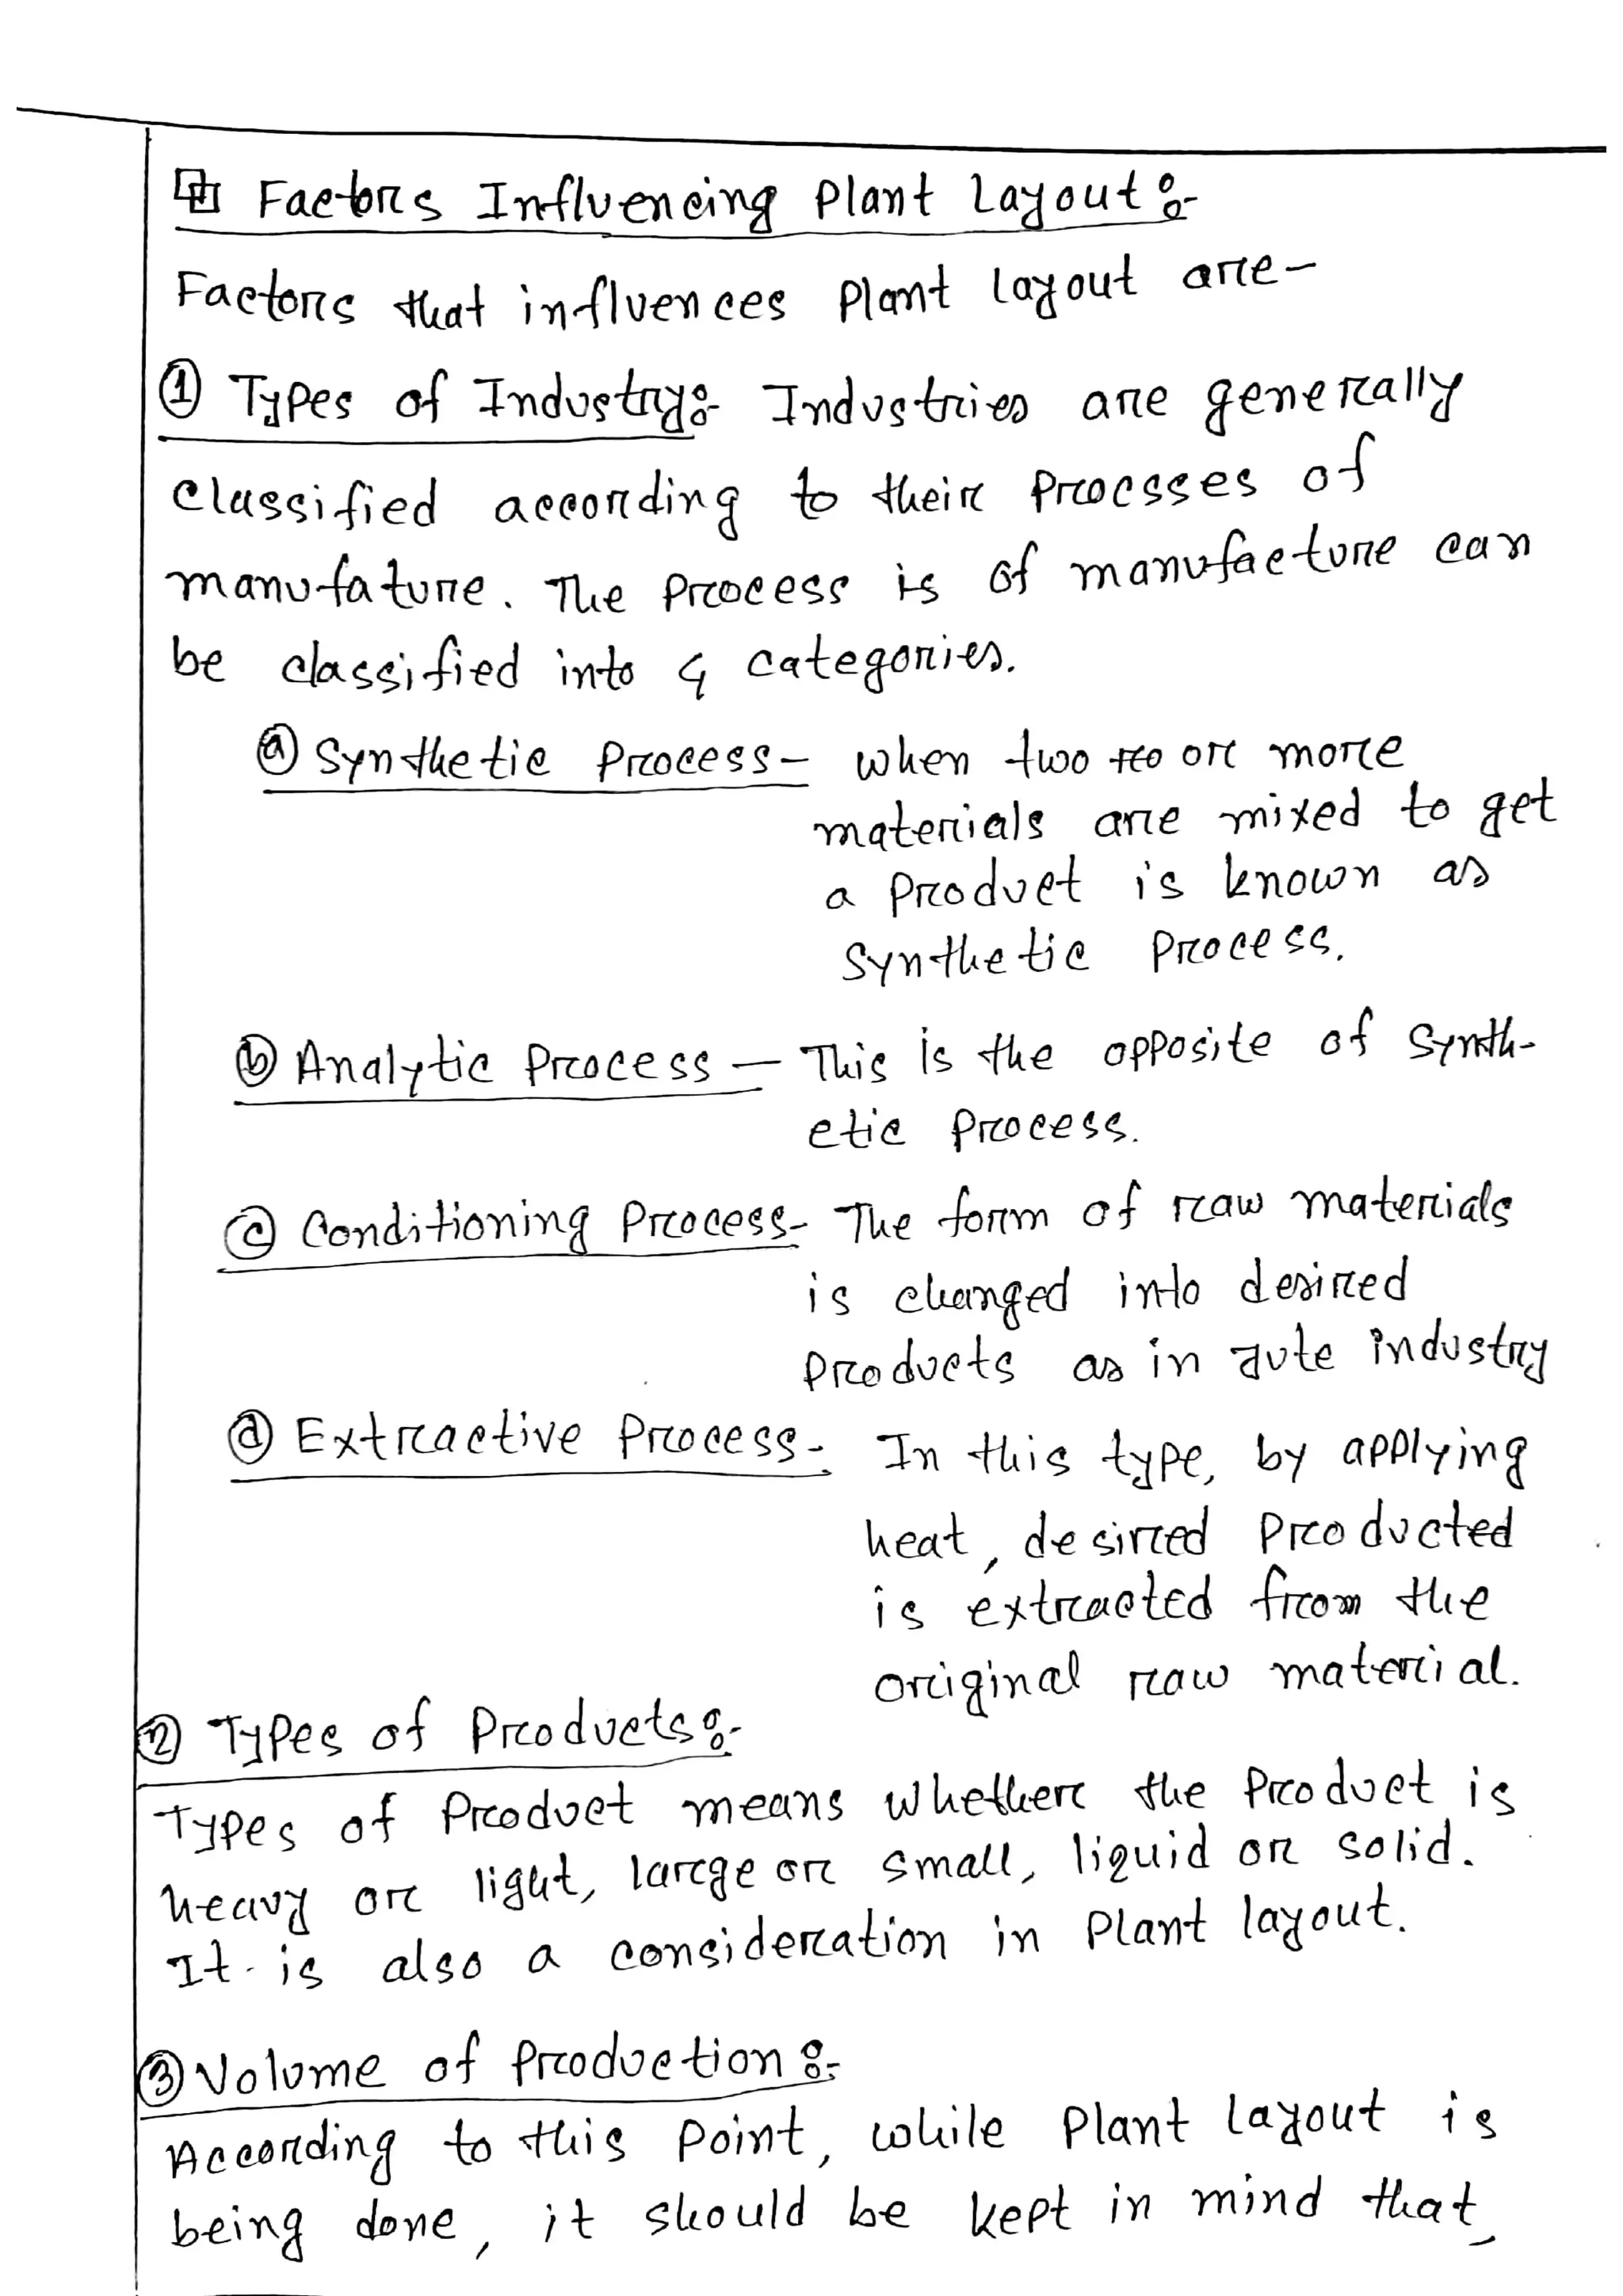 Factors Influencing Plant Layout:-
Factors that influences Plant layout are-
① Types of Industry:- Industries are generally
classified according to their Procsses of
manufature. The Process is of manufacture can
be classified into 4 categories.
ⓐ Synthetic Process- when two or more
materials are mixed to get
a Product is known as
Synthetic Process.
ⓑ Analytic Process - This is the opposite of Synth-
etic Process.
ⓒ Conditioning Process- The form of raw materials
is changed into desired
Products as in Jute industry
ⓓ Extractive Process- In this type, by applying
heat, desired Producted
is extracted from the
original raw material.
② Types of Products:-
Types of Product means whether the Product is
heavy or light, large or small, liquid or solid.
It is also a consideration in Plant layout.
③ Volume of Production:-
According to this Point, while Plant layout is
being done, it should be kept in mind that,